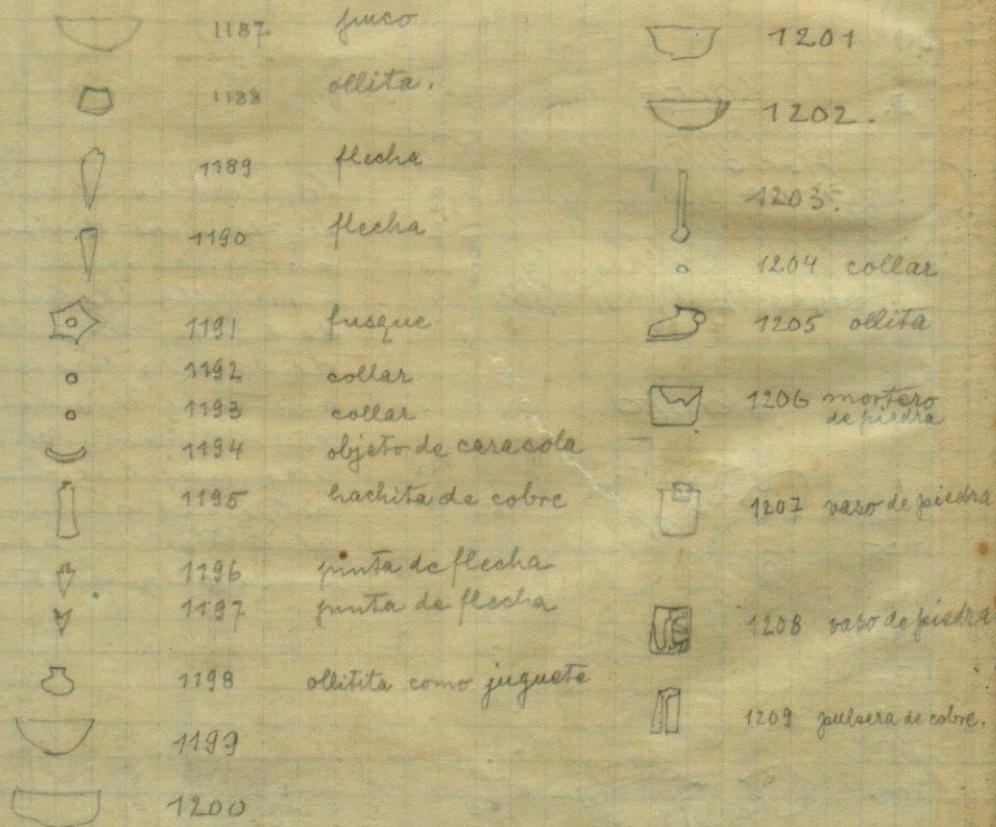 1187 puco
1188 ollita.
1189 flecha
1190 flecha
1191 fusque
1192 collar
1193 collar
1194 objeto de caracola
1195 hachita de cobre
1196 punta de flecha
1197 punta de flecha
1198 ollitita como juguete
1199
1200
1201
1202.
1203.
1204 collar
1205 ollita
1206 mortero
de piedra
1207 vaso de piedra
1208 vaso de piedra
1209 pulsera de cobre.